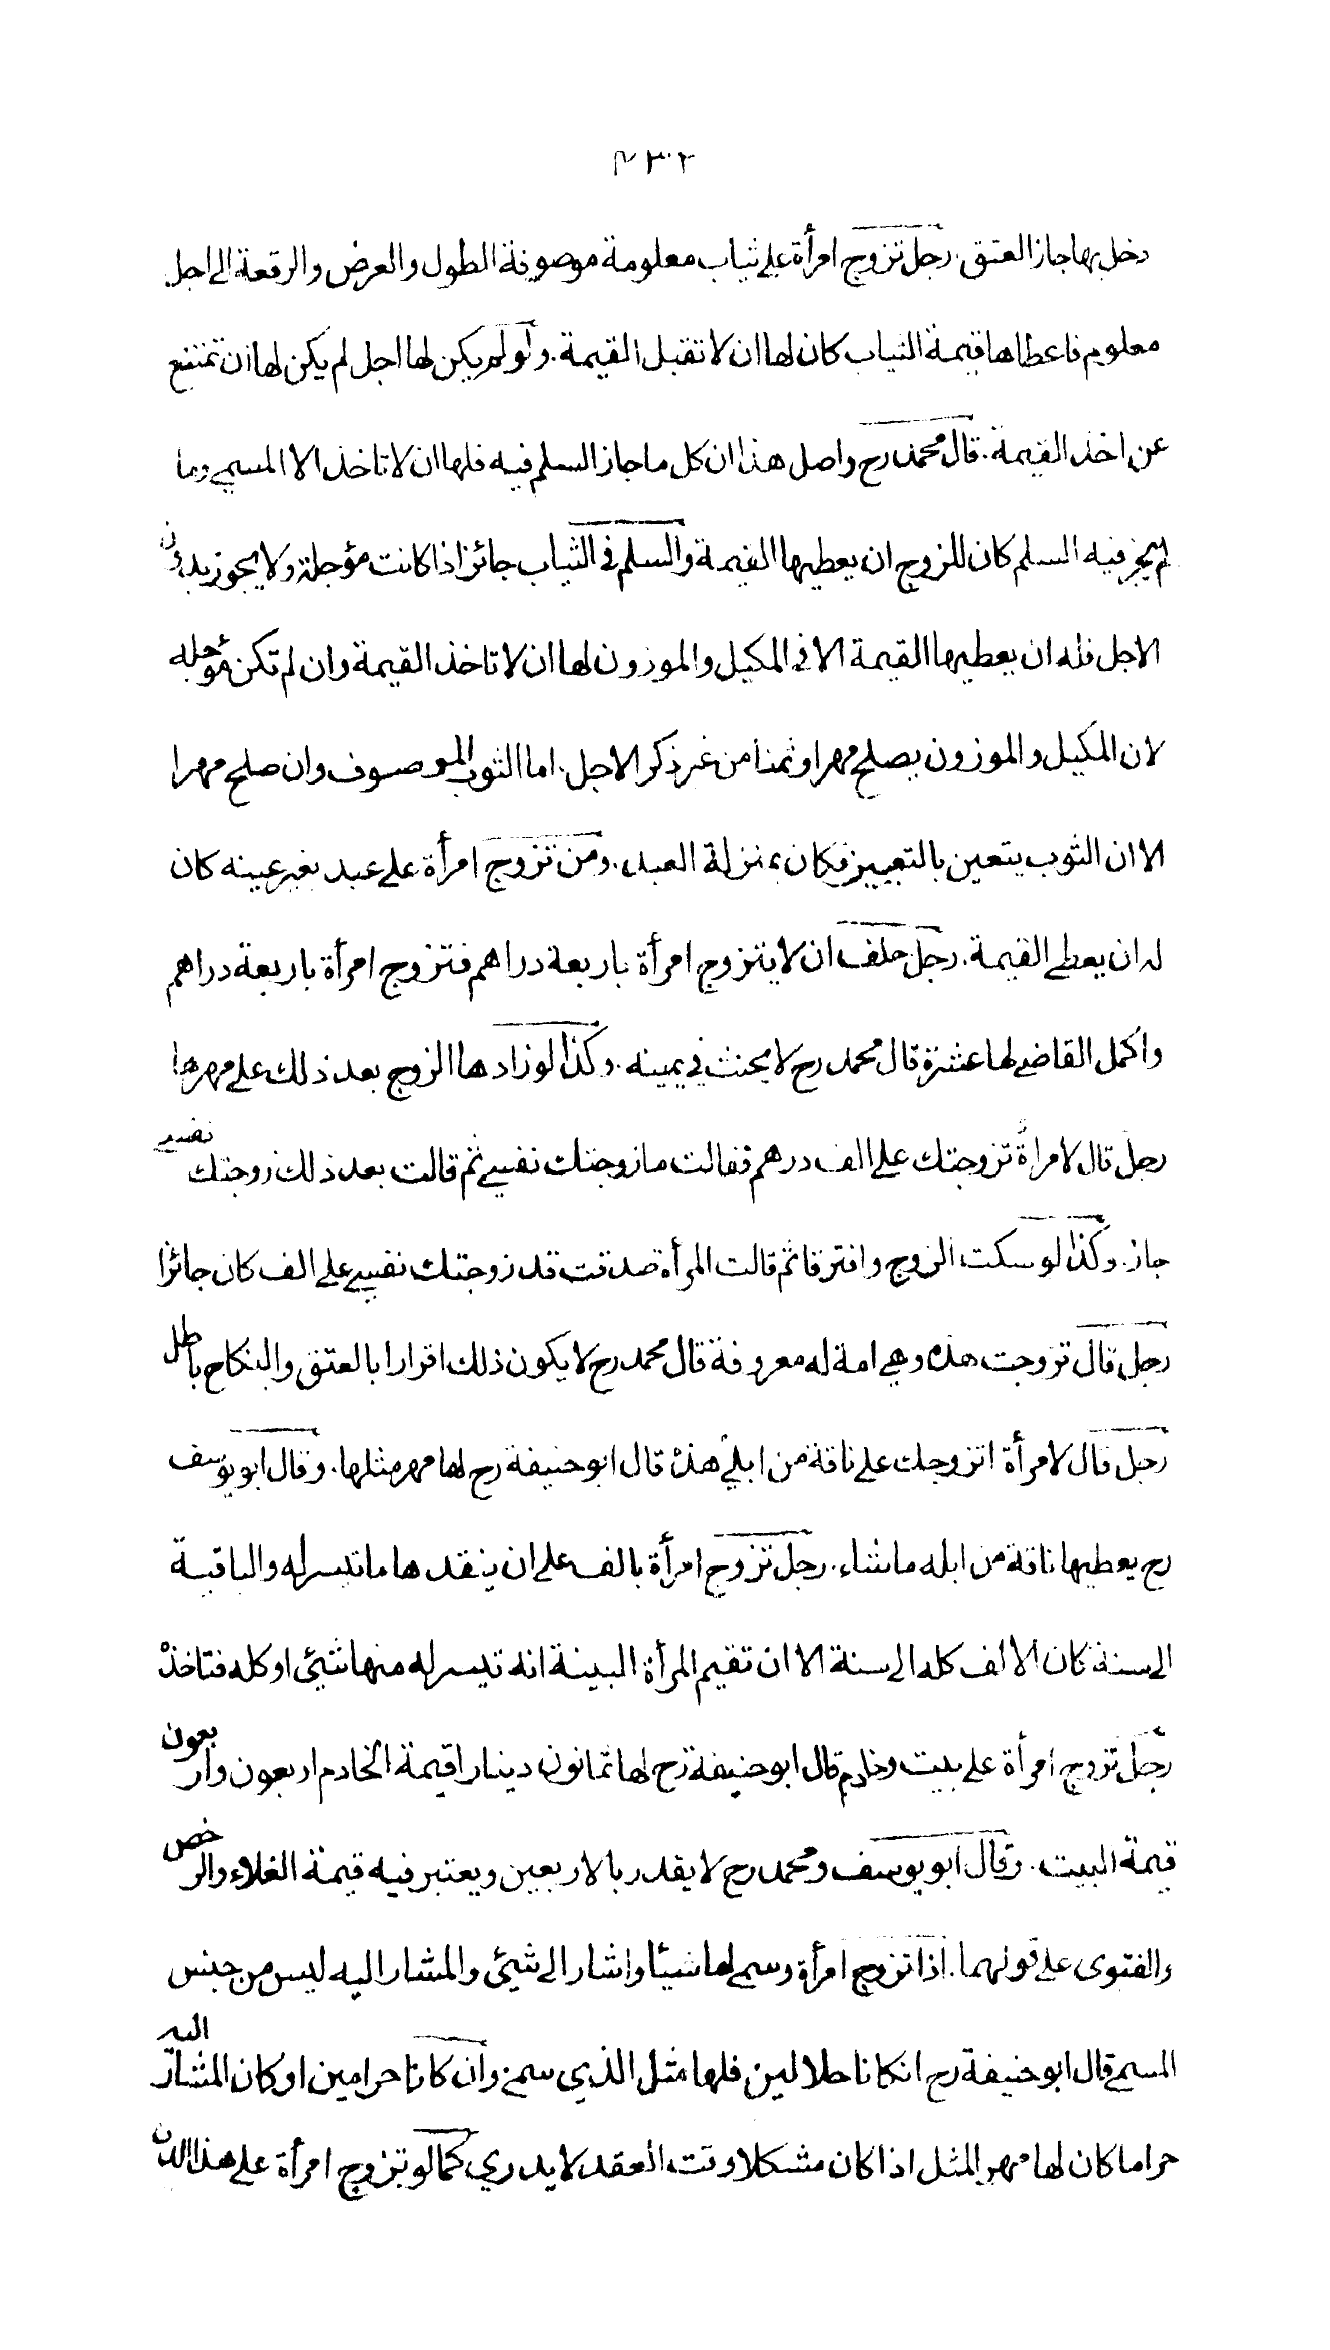 ٤٣٢
دخل بها جاز العتق . رجل تزوج امرأة على ثياب معلومة موصوفة الطول والعرض والرقعة الى اجل
معلوم فاعطاها قيمة الثياب كان لها ان لا تقبل القيمة . ولو لم يكن لها اجل لم يكن لها ان تمتنع
عن اخذ القيمة . قال محمد رح واصل هذا ان كل ما جاز السلم فيه فلها ان لا تاخذ الا المسمى وما
لم يجز فيه السلم كان للزوج ان يعطيها القيمة والسلم في الثياب جائز اذا كانت مؤجلة ولا يجوز بدون
الاجل فله ان يعطيها القيمة الا في المكيل والموزون لها ان لا تاخذ القيمة وان لم تكن مؤجله
لان المكيل والموزون يصلح مهرا وثمنا من غير ذكر الاجل . اما الثوب الموصوف وان صلح مهرا
الا ان الثوب يتعين بالتعيين فكان بمنزلة العبد . ومن تزوج امرأة على عبد بغير عينه كان
له ان يعطي القيمة . رجل حلف ان لا يتزوج امرأة باربعة دراهم فتزوج امرأة باربعة دراهم
واكمل القاضي لها عشرة قال محمد رح لا يحنث في يمينه . وكذا لو زادها الزوج بعد ذلك على مهرها
رجل قال لامرأة تزوجتك على الف درهم فقالت ما زوجتك نفسي ثم قالت بعد ذلك زوجتك نفسي
جاز . وكذا لو سكت الزوج وافترقا ثم قالت المرأة صدقت قد زوجتك نفسي على الف كان جائزا
رجل قال تزوجت هذه وهي امة له معروفة قال محمد رح لا يكون ذلك اقرارا بالعتق والنكاح باطل
رجل قال لامرأة اتزوجك على ناقة من ابلي هذه قال ابو حنيفة رح لها مهر مثلها . وقال ابو يوسف
رح يعطيها ناقة من ابله ما شاء . رجل تزوج امرأة بالف على ان ينقدها ما تيسر له والباقية
الى سنة كان الالف كله الى سنة الا ان تقيم المرأة البينة انه تيسر له منها شيئ او كله فتاخذه
رجل تزوج امرأة على بيت وخادم قال ابو حنيفة رح لها ثمانون دينارا قيمة الخادم اربعون واربعون
قيمة البيت . وقال ابو يوسف ومحمد رح لا يقدر بالاربعين ويعتبر فيه قيمة الغلاء والرخص
والفتوى على قولهما . اذا تزوج امرأة وسمى لها شيئا واشار الى شيئ والمشار اليه ليس من جنس
المسمى قال ابو حنيفة رح انكانا حلالين فلها مثل الذي سمى وان كانا حرامين او كان المشار اليه
حراما كان لها مهر المثل اذا كان مشكلا وقت العقد لا يدري كما لو تزوج امرأة على هذا الدن